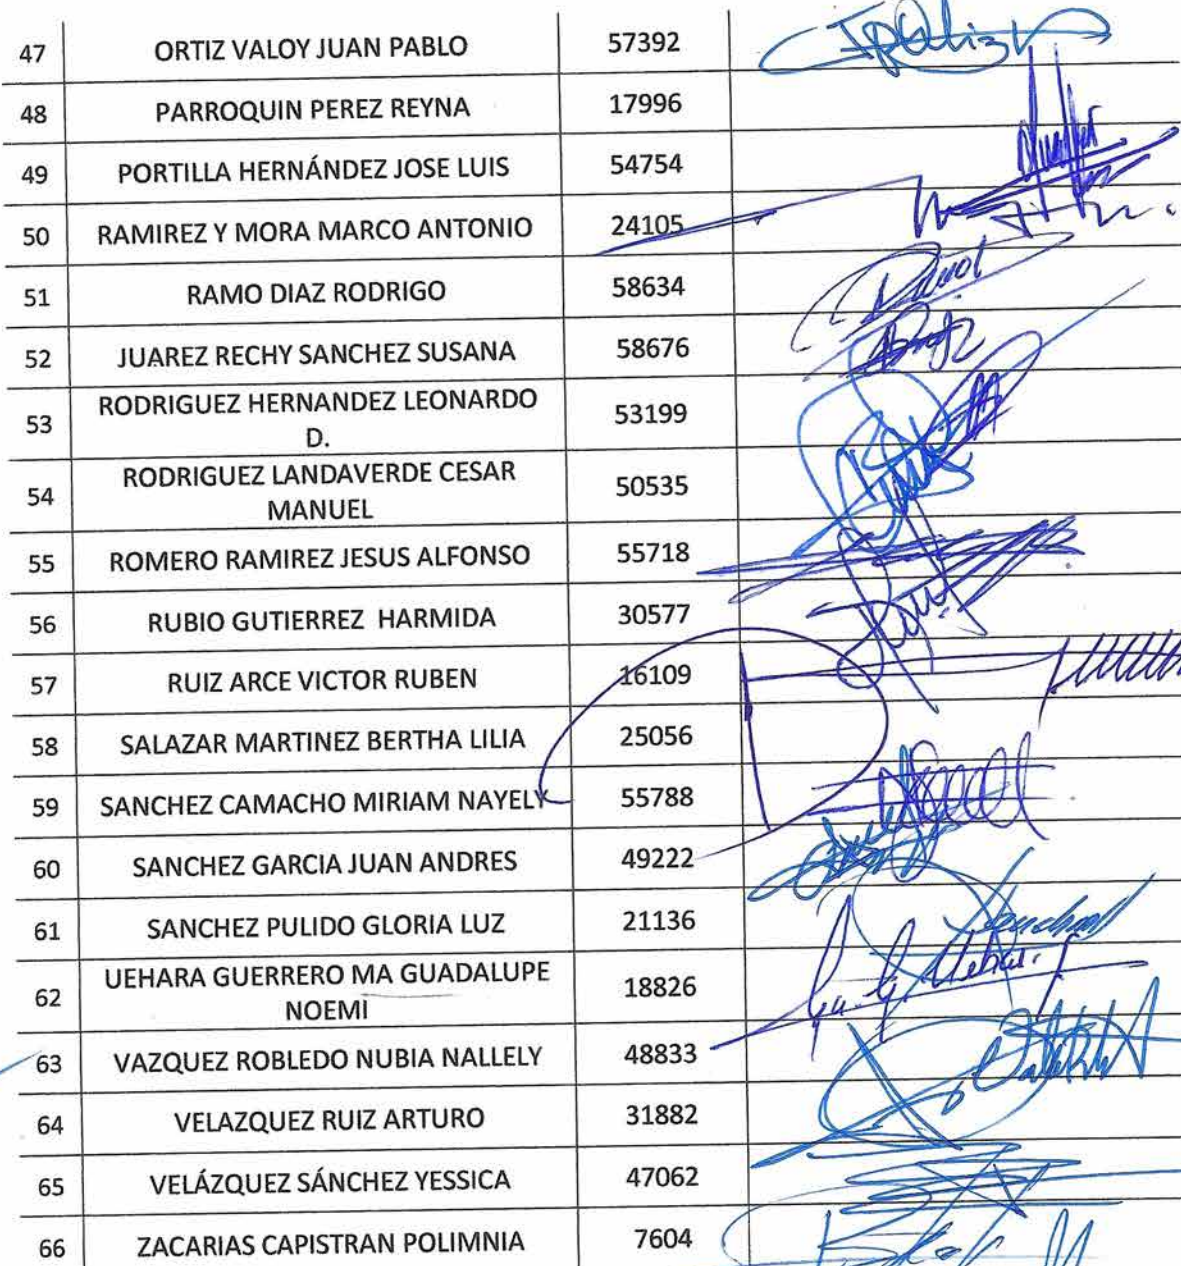 47 ORTIZ VALOY JUAN PABLO 57392
48 PARROQUIN PEREZ REYNA 17996
49 PORTILLA HERNÁNDEZ JOSE LUIS 54754
50 RAMIREZ Y MORA MARCO ANTONIO 24105
51 RAMO DIAZ RODRIGO 58634
52 JUAREZ RECHY SANCHEZ SUSANA 58676
53 RODRIGUEZ HERNANDEZ LEONARDO 53199
D.
54 RODRIGUEZ LANDAVERDE CESAR 50535
MANUEL
55 ROMERO RAMIREZ JESUS ALFONSO 55718
56 RUBIO GUTIERREZ HARMIDA 30577
57 RUIZ ARCE VICTOR RUBEN 16109
58 SALAZAR MARTINEZ BERTHA LILIA 25056
59 SANCHEZ CAMACHO MIRIAM NAYELY 55788
60 SANCHEZ GARCIA JUAN ANDRES 49222
61 SANCHEZ PULIDO GLORIA LUZ 21136
62 UEHARA GUERRERO MA GUADALUPE 18826
NOEMI
63 VAZQUEZ ROBLEDO NUBIA NALLELY 48833
64 VELAZQUEZ RUIZ ARTURO 31882
65 VELÁZQUEZ SÁNCHEZ YESSICA 47062
66 ZACARIAS CAPISTRAN POLIMNIA 7604